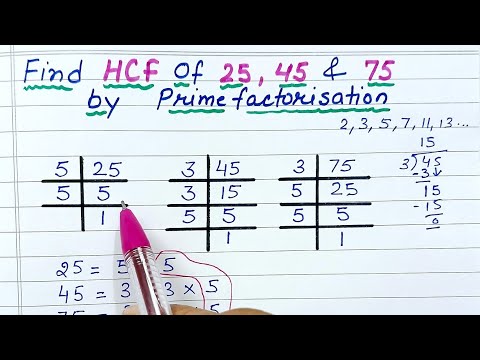 Find HCF Of 25, 45 & 75
by Prime factorisation
2, 3, 5, 7, 11, 13 ...
5 | 25
5 | 5
1
3 | 45
3 | 15
5 | 5
1
3 | 75
5 | 25
5 | 5
1
15
3 ) 45
-3↓
15
-15
0
25 = 5 5
45 = 3 3 × 5
75 = 5